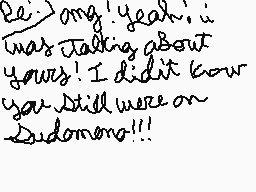 Re:> omg! yeah! i
was talking about
yours! I didit know
you still were on
Sudomemo!!!